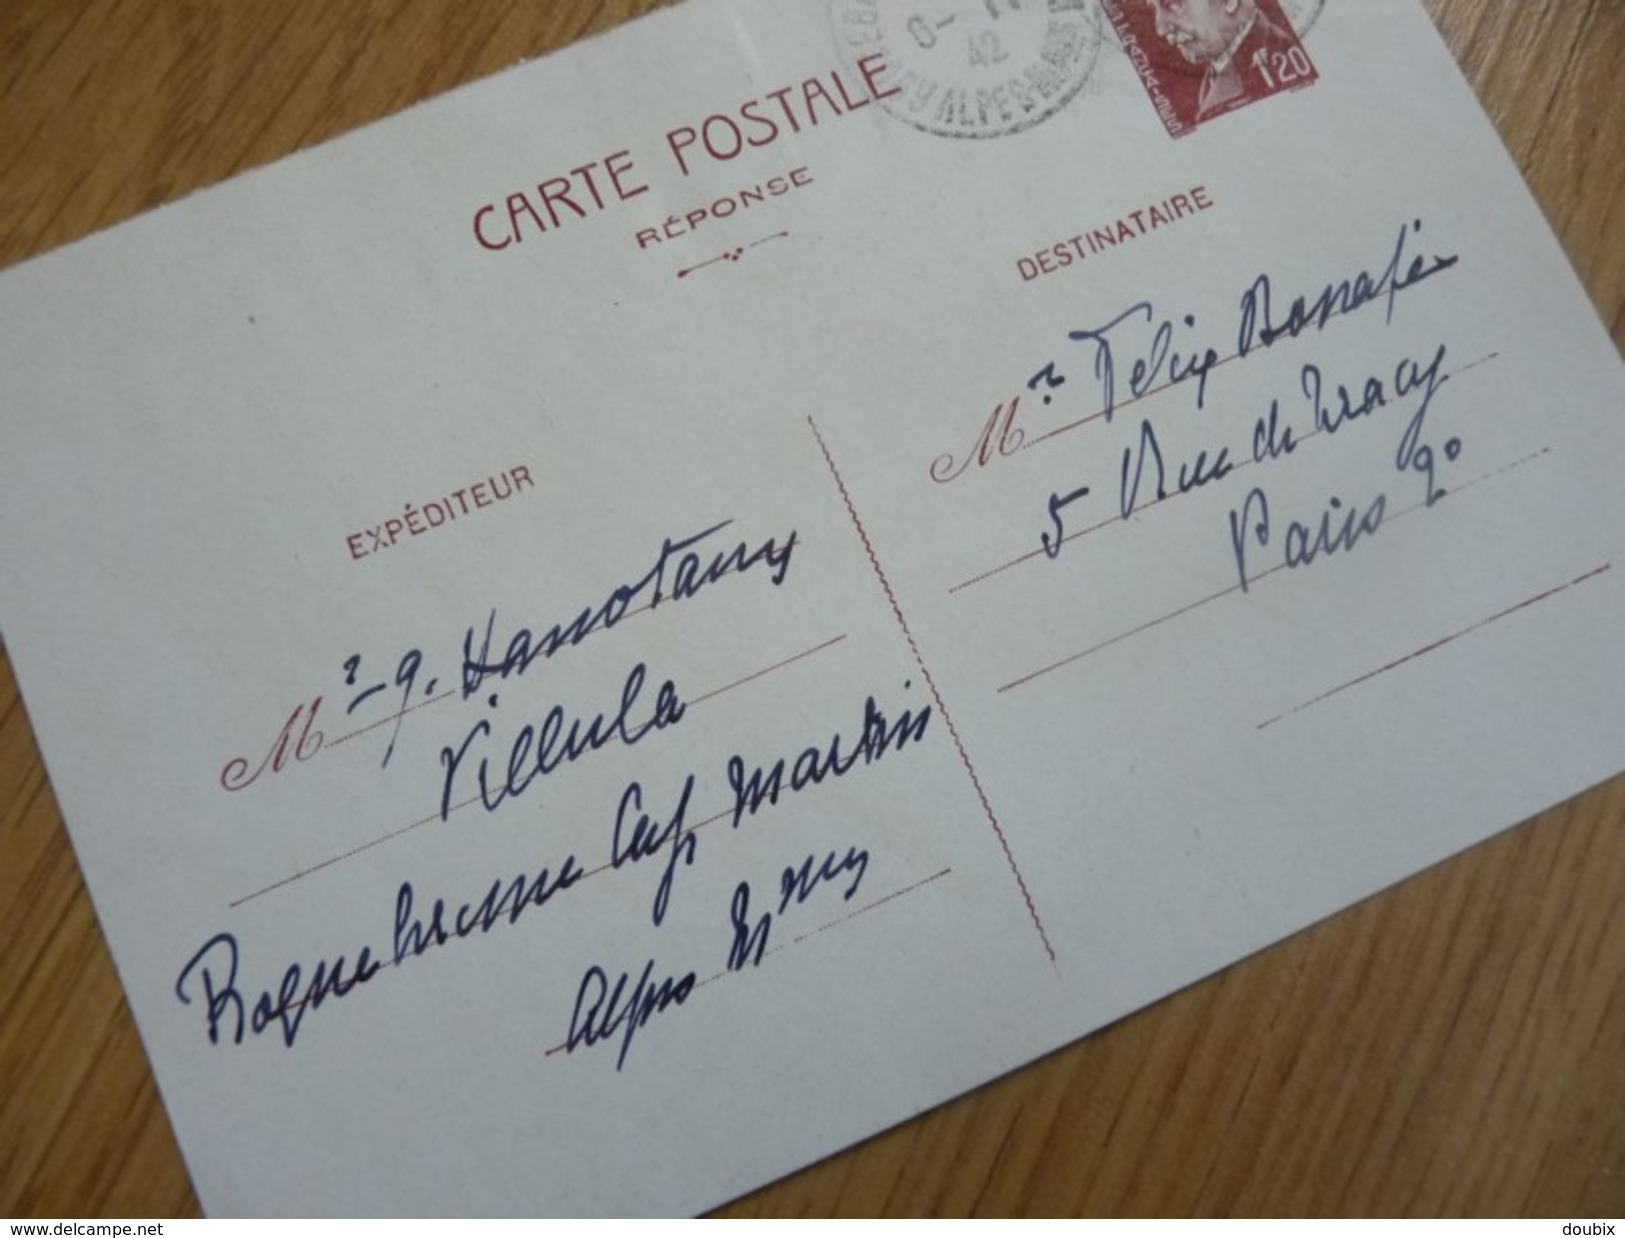 CARTE POSTALE
RÉPONSE
42
ALPES-MAR
1F20
DESTINATAIRE
Mr Félix Bonafé
5 Rue de Tracy
Paris 2°
EXPÉDITEUR
Mr G. Hanotaux
Villula
Roquebrune Cap Martin
Alpes Mmes
delcampe.net
doubix